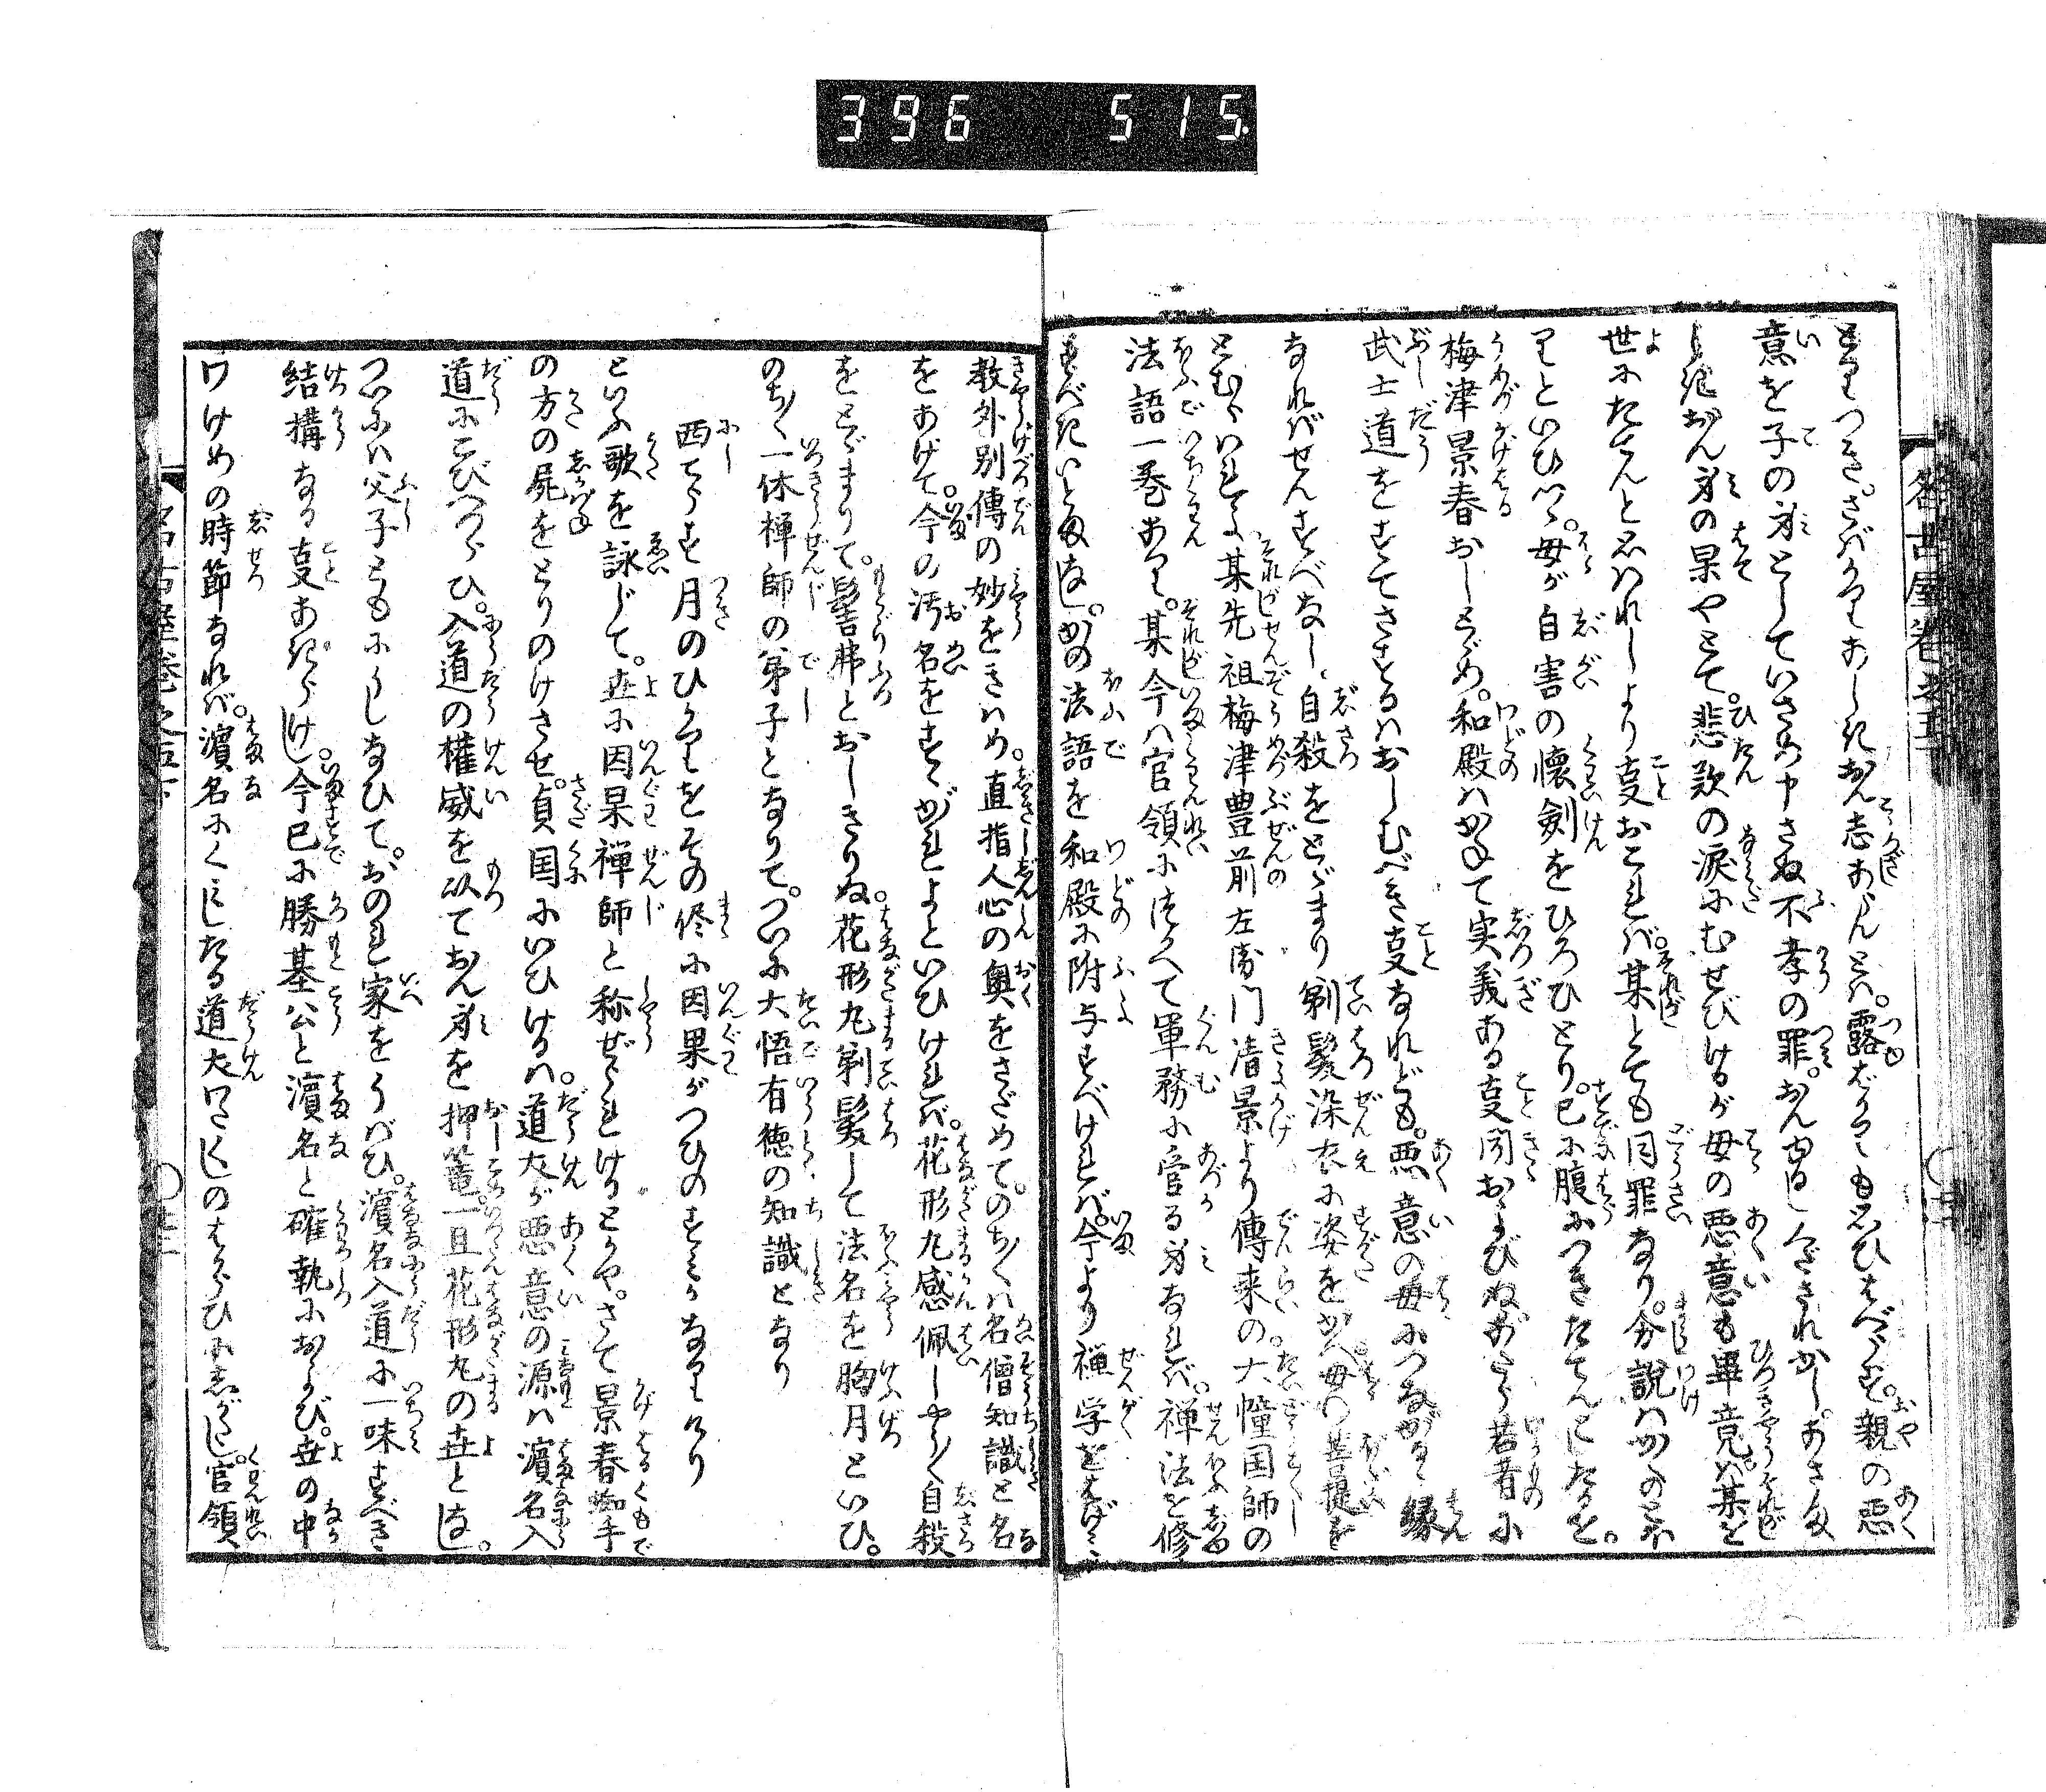 396 515
とりつき。さばかりあしきおん志あらんとは。露ばかりも思ひはべらず。親の悪
意を子の身としていさめ申さぬ不孝の罪。おんゆるしくだされかし。あさま
しきおん身の果やとて。悲歎の涙にむせびけるが母の悪意も畢竟は某を
世にたさんと思はれしより事おこれば。某とても同罪なり。分説はかのごと
りといひつゝ。母が自害の懐剣をひろひとり。已に腹につきたてんにしたるを。
梅津景春おしとゞめ。和殿はかねて実義ある事聞およびぬ。あたら若者に
武士道をすてさするはおしむべき事なれども。悪意の母につながる縁
なればせんすべなし。自殺をとゞまり剃髪染衣に姿をかへ。母の菩提を
とむらはれよ。某先祖梅津豊前左衛門清景より傳来の。大幢国師の
法語一巻あり。某今は官領につかへて軍務に管る身なれば。禅法を修
すべきいとまなし。かの法語を和殿に附与すべければ。今より禅学をはげみ
教外別傳の妙をきはめ。直指人心の奥をさだめて。のち〳〵は名僧知識と名
をあげて。今の汚名をすゝがれよといひければ。花形丸感佩しやう〳〵自殺
をとゞまりて。髻弗とおしきりぬ。花形丸剃髪して法名を胸月といひ。
のち〳〵一休禅師の弟子となりて。つひに大悟有徳の知識となり
西てらす月のひかりをその侭に因果がつひのすみかなりけり
といふ歌を詠じて。世に因果禅師と称ぜられけるとかや。さて景春蜘手
の方の屍をとりのけさせ。貞国にいひけるは。道犬が悪意の源は濱名入
道にこびへつらひ。入道の権威を以ておん身を押篭。一旦花形丸の世となし。
つひには父子ともにうしなひて。おのれ家をうばひ。濱名入道に一味すべき
結構なる事あきらけし。今已に勝基公と濱名と確執におよび。世の中
わけめの時節なれば。濱名にくみしたる道犬わたくしのはからひにしがたし。官領
名古屋巻之五下